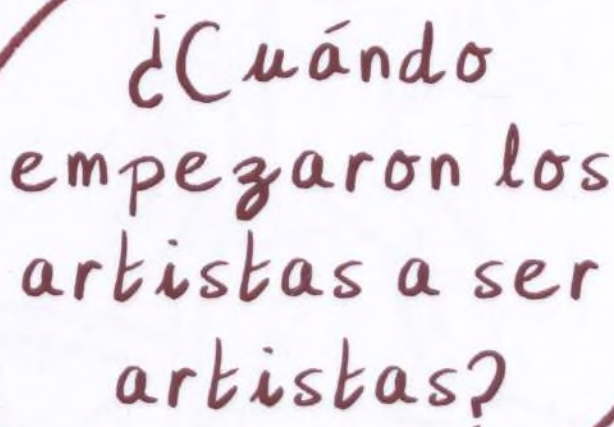 ¿Cuándo
empezaron los
artistas a ser
artistas?